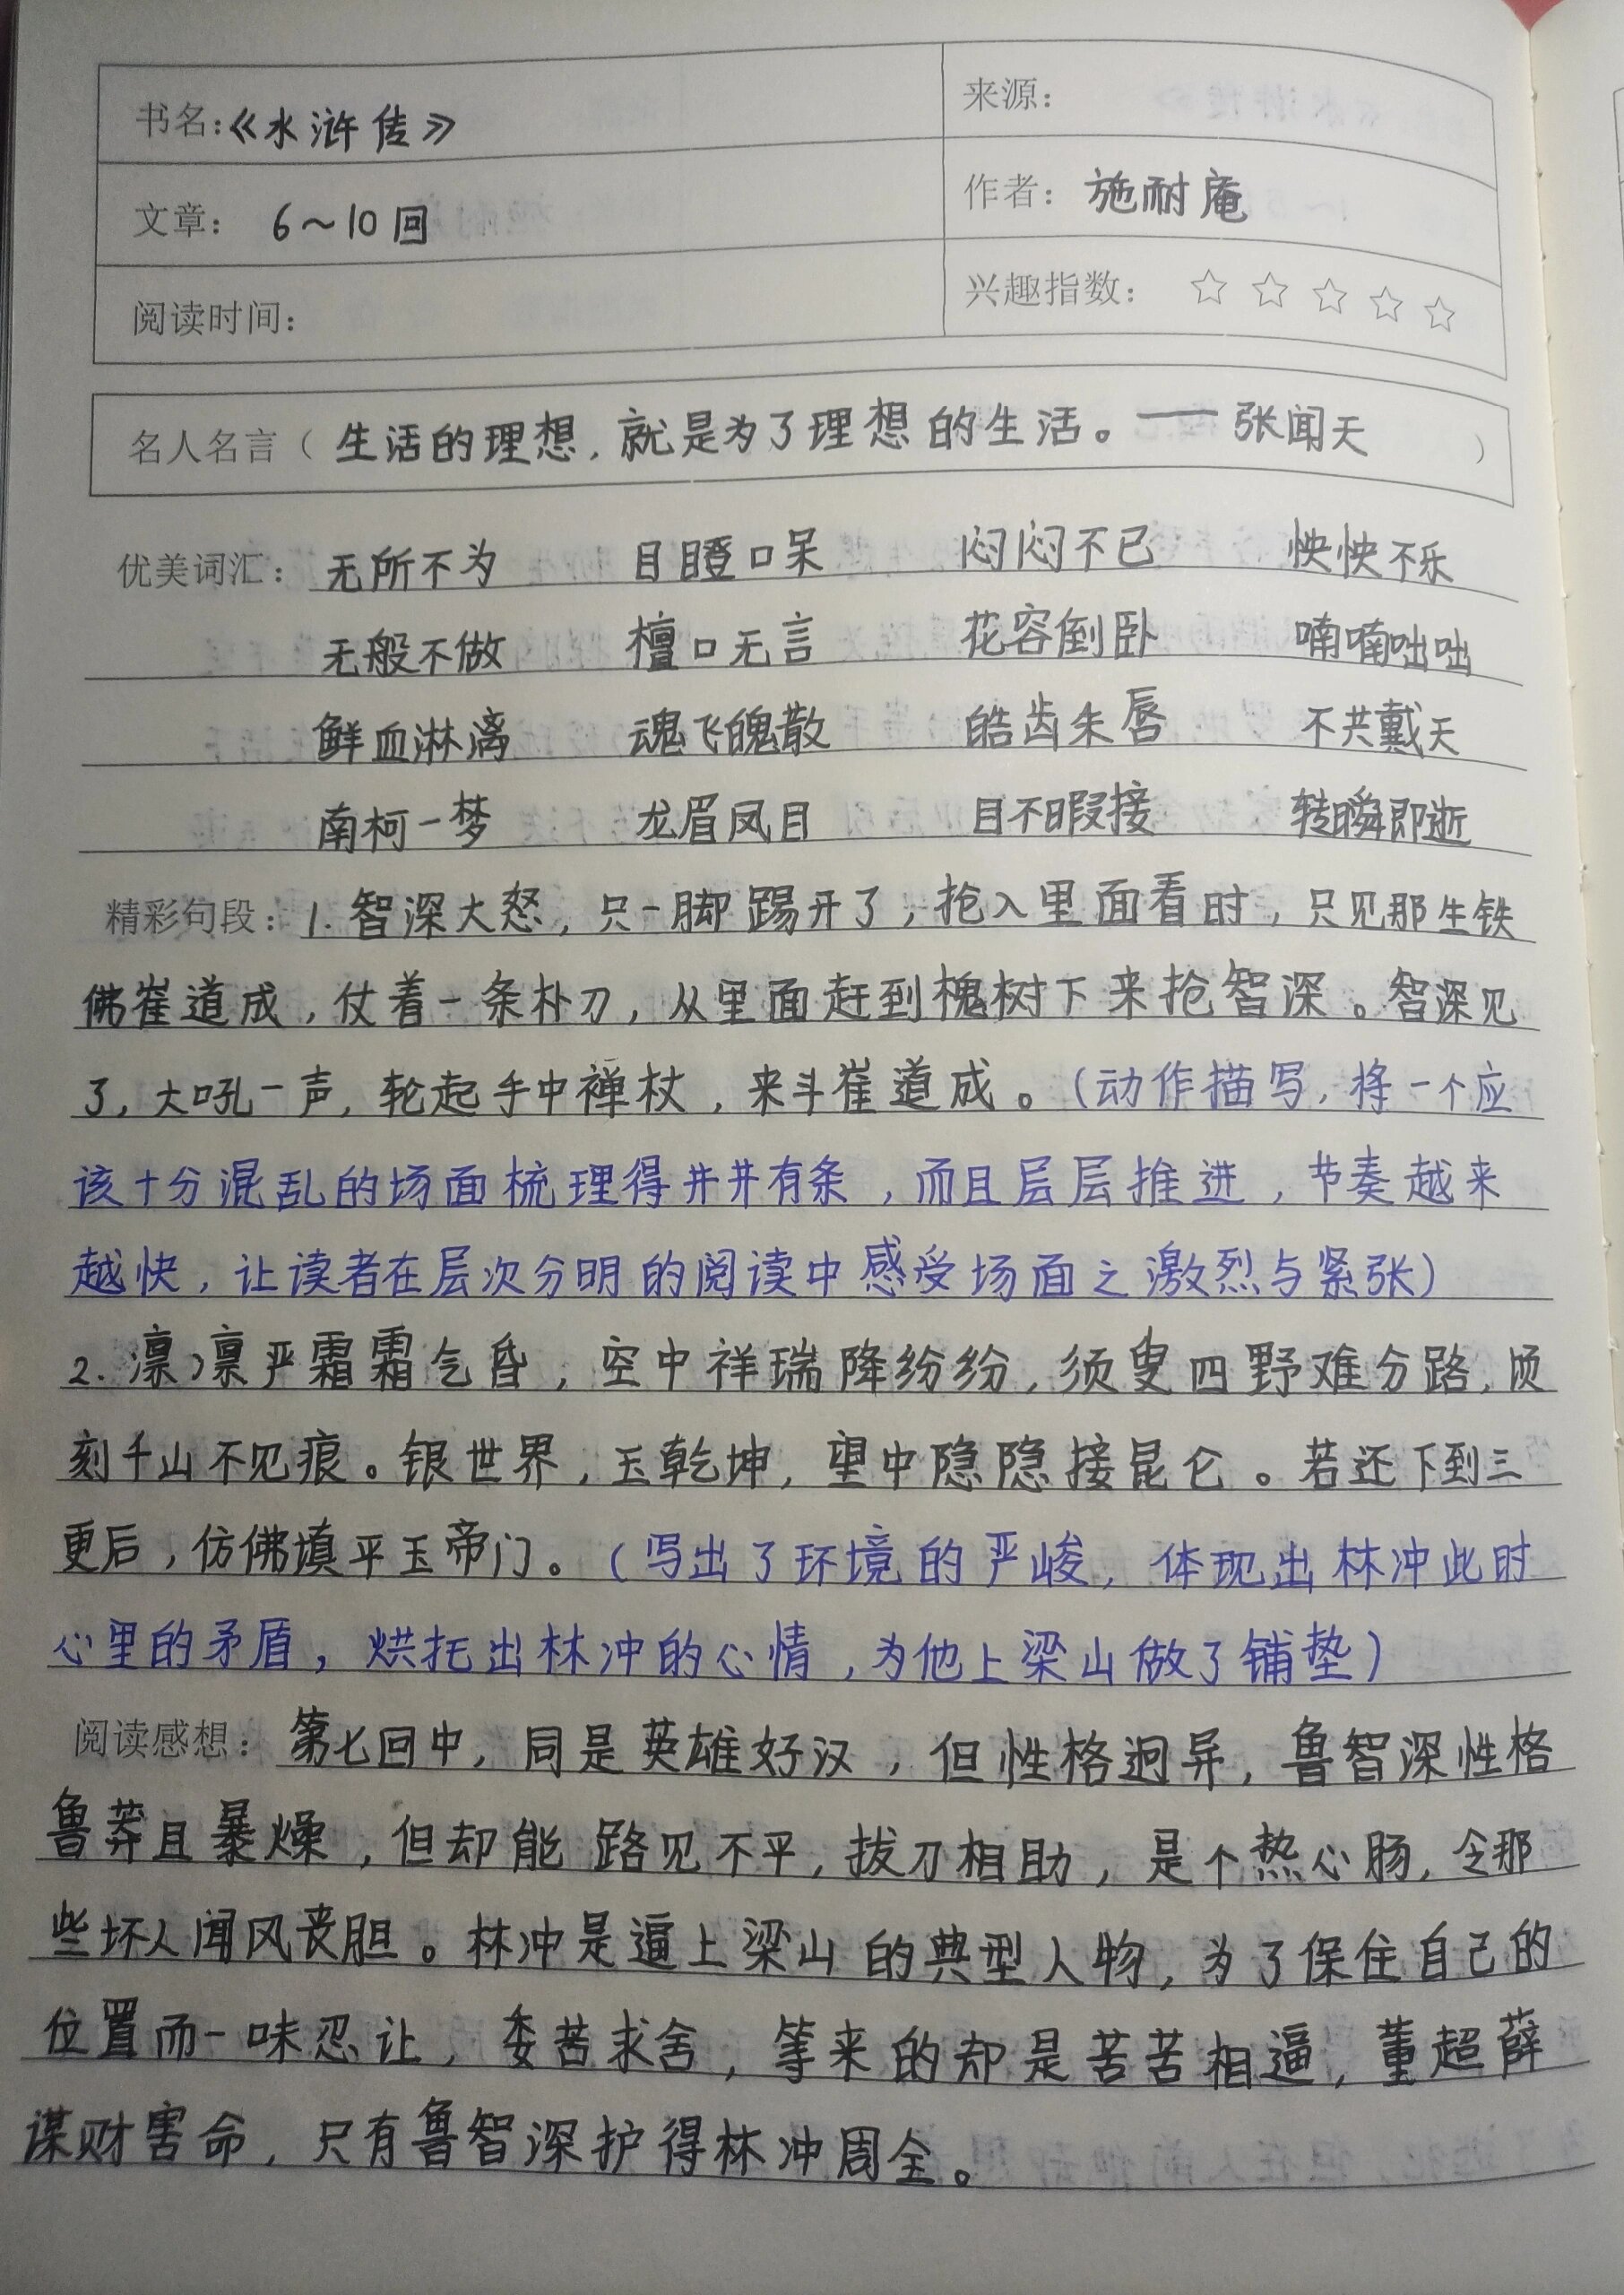 书名:《水浒传》
来源:
文章: 6～10回
作者: 施耐庵
阅读时间:
兴趣指数: ☆ ☆ ☆ ☆ ☆
名人名言（生活的理想,就是为了理想的生活。——张闻天）
优美词汇: 无所不为 目瞪口呆 闷闷不已 怏怏不乐
无般不做 檀口无言 花容倒卧 喃喃咄咄
鲜血淋漓 魂飞魄散 皓齿朱唇 不共戴天
南柯一梦 龙眉凤目 目不暇接 转瞬即逝
精彩句段: 1. 智深大怒,只一脚踢开了,抢入里面看时,只见那生铁
佛崔道成,仗着一条朴刀,从里面赶到槐树下来抢智深。智深见
了,大吼一声,轮起手中禅杖,来斗崔道成。(动作描写,将一个应
该十分混乱的场面梳理得井井有条,而且层层推进,节奏越来
越快,让读者在层次分明的阅读中感受场面之激烈与紧张)
2. 凛凛严霜霜气昏,空中祥瑞降纷纷,须叟四野难分路,顷
刻千山不见痕。银世界,玉乾坤,望中隐隐接昆仑。若还下到三
更后,仿佛填平玉帝门。(写出了环境的严峻,体现出林冲此时
心里的矛盾,烘托出林冲的心情,为他上梁山做了铺垫)
阅读感想: 第七回中,同是英雄好汉,但性格迥异,鲁智深性格
鲁莽且暴燥,但却能路见不平,拔刀相助,是个热心肠,令那
些坏人闻风丧胆。林冲是逼上梁山的典型人物,为了保住自己的
位置而一味忍让,委苦求舍,等来的却是苦苦相逼,董超薛
谋财害命,只有鲁智深护得林冲周全。